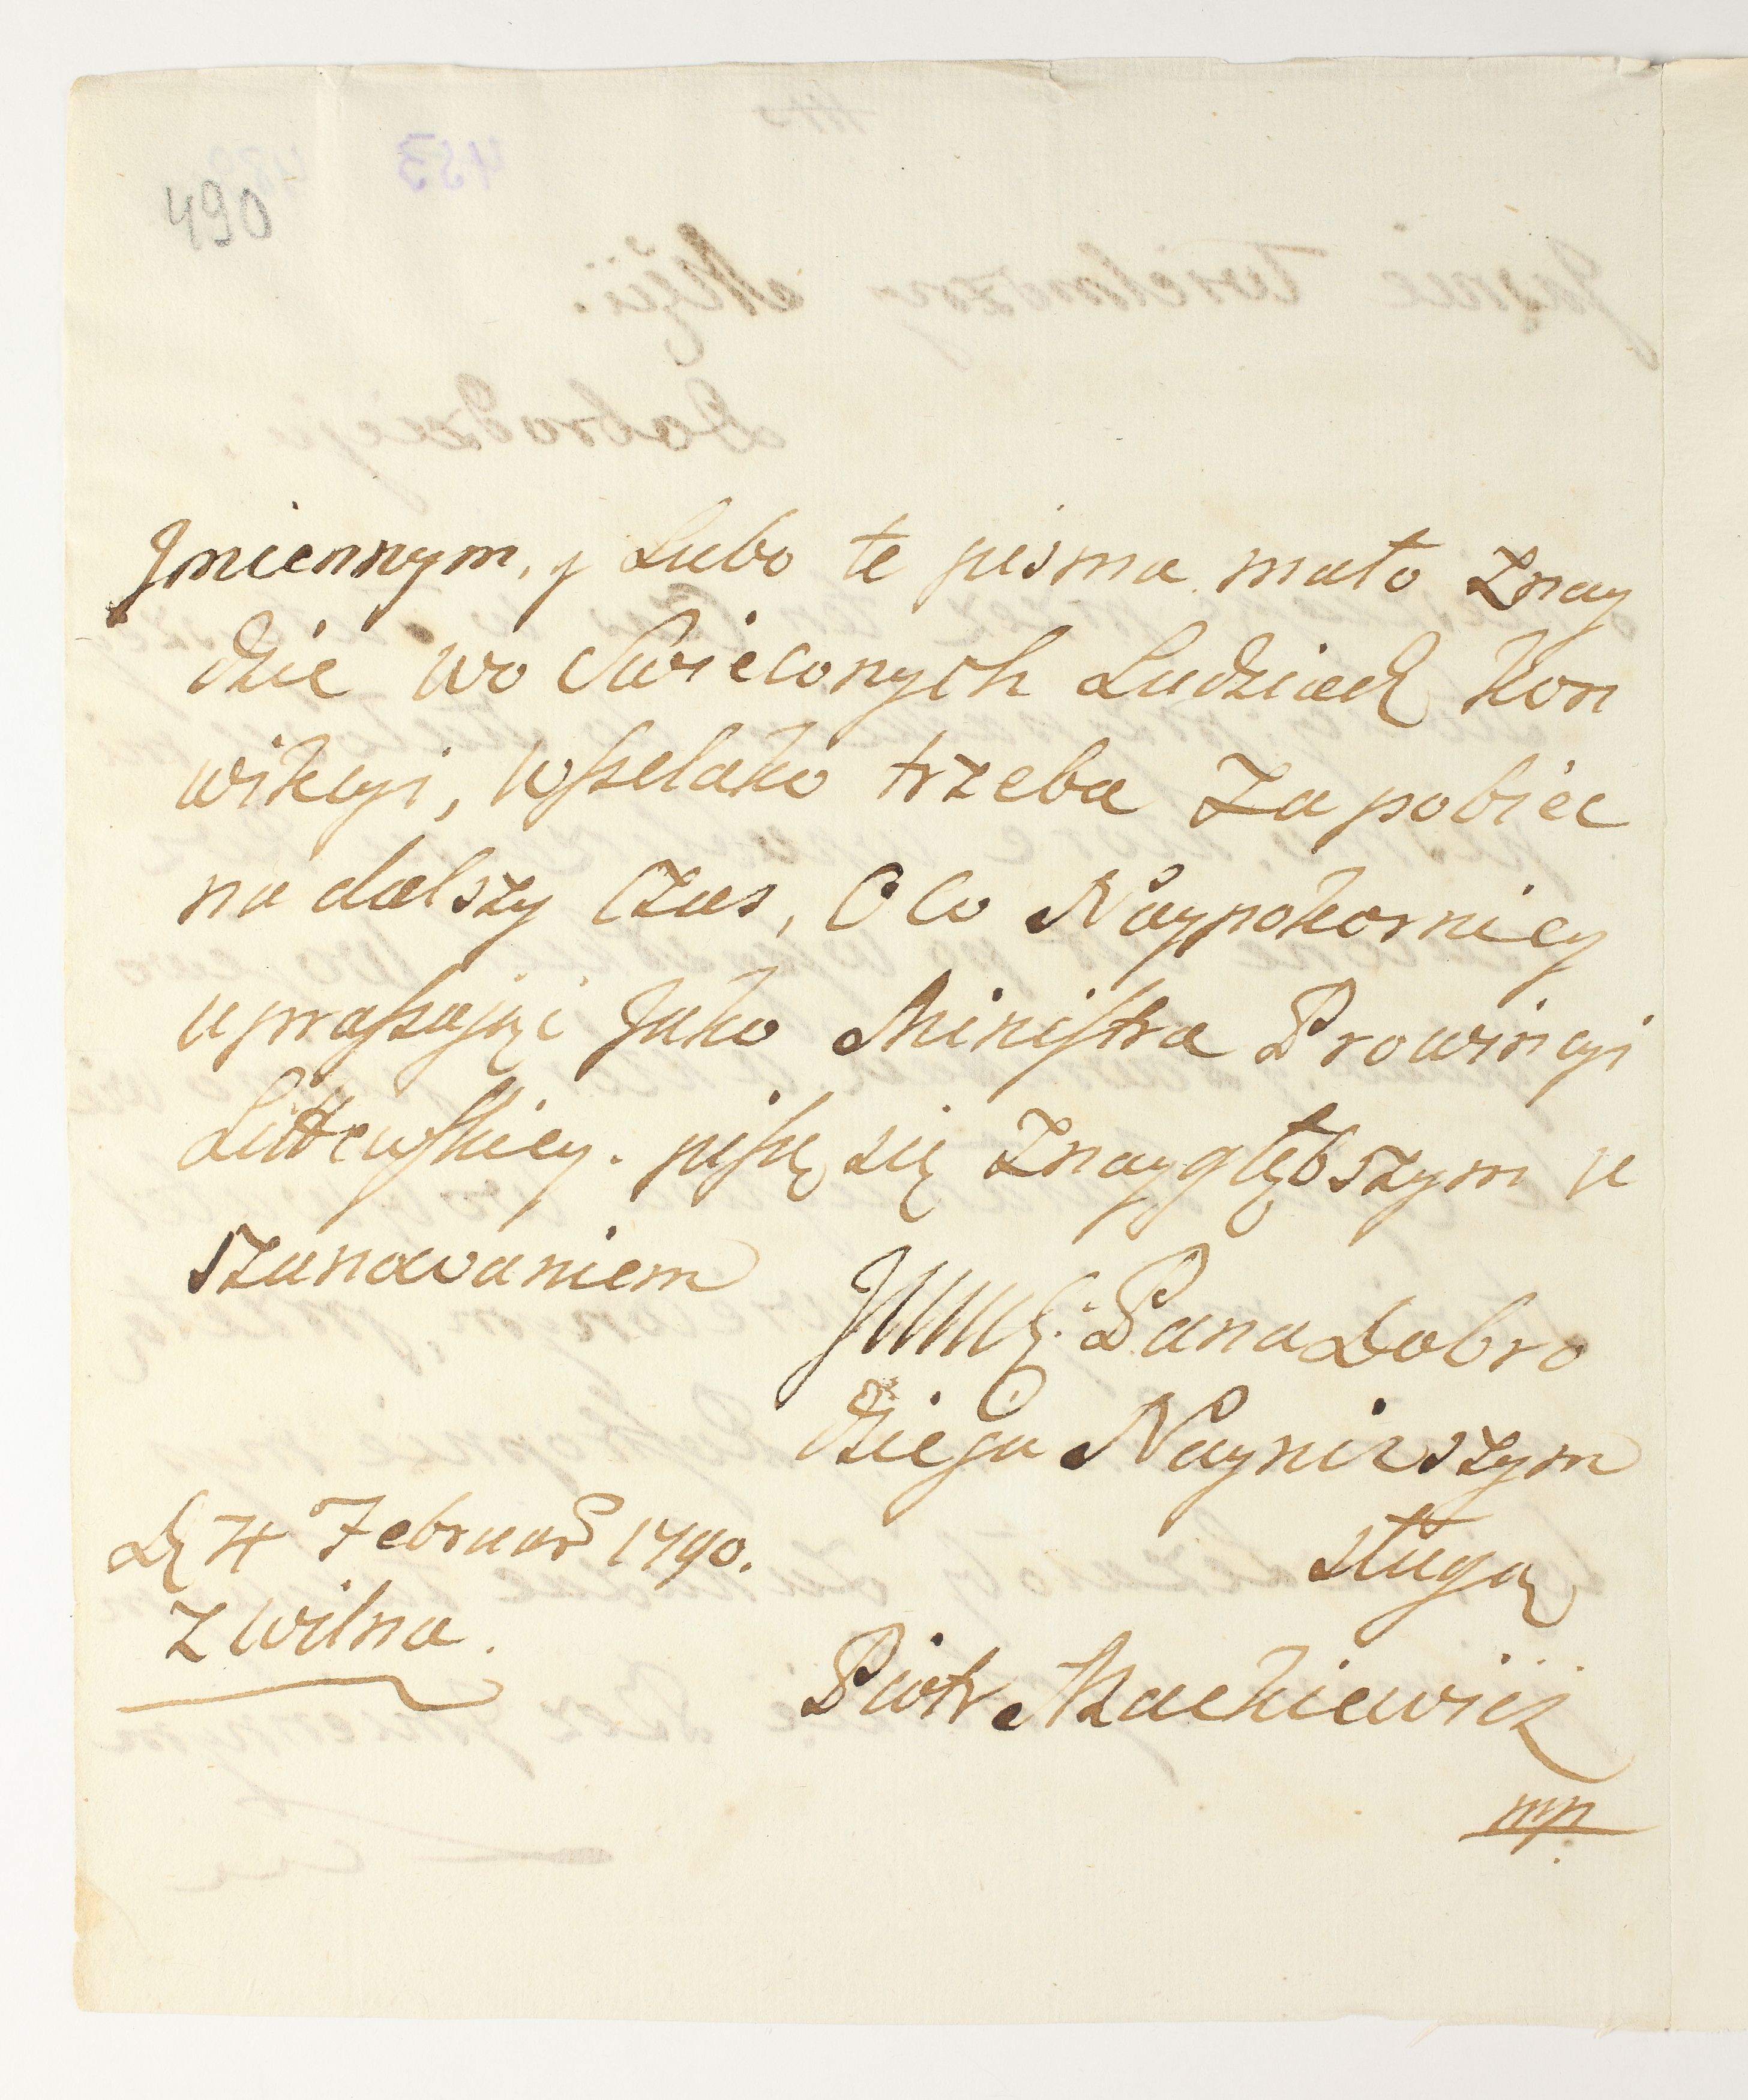 490
Jmiennym, y Lubo te pisma mało Znay
dzie wo Swieconych Ludziach Kon
wikcyi, wszelako trzeba Zapobiec
na dalszy Czas, O Co Naypokorniey
upraszajęc Jako Ministra Prowincyi
Littewskiey. piszę się Znaygłębszym u
szanowaniem
Pana Dobro
dzieja Nayniższym
sługą
D 4 Februar 1790.
z Wilna.
Piotr Mackiewicz
mp